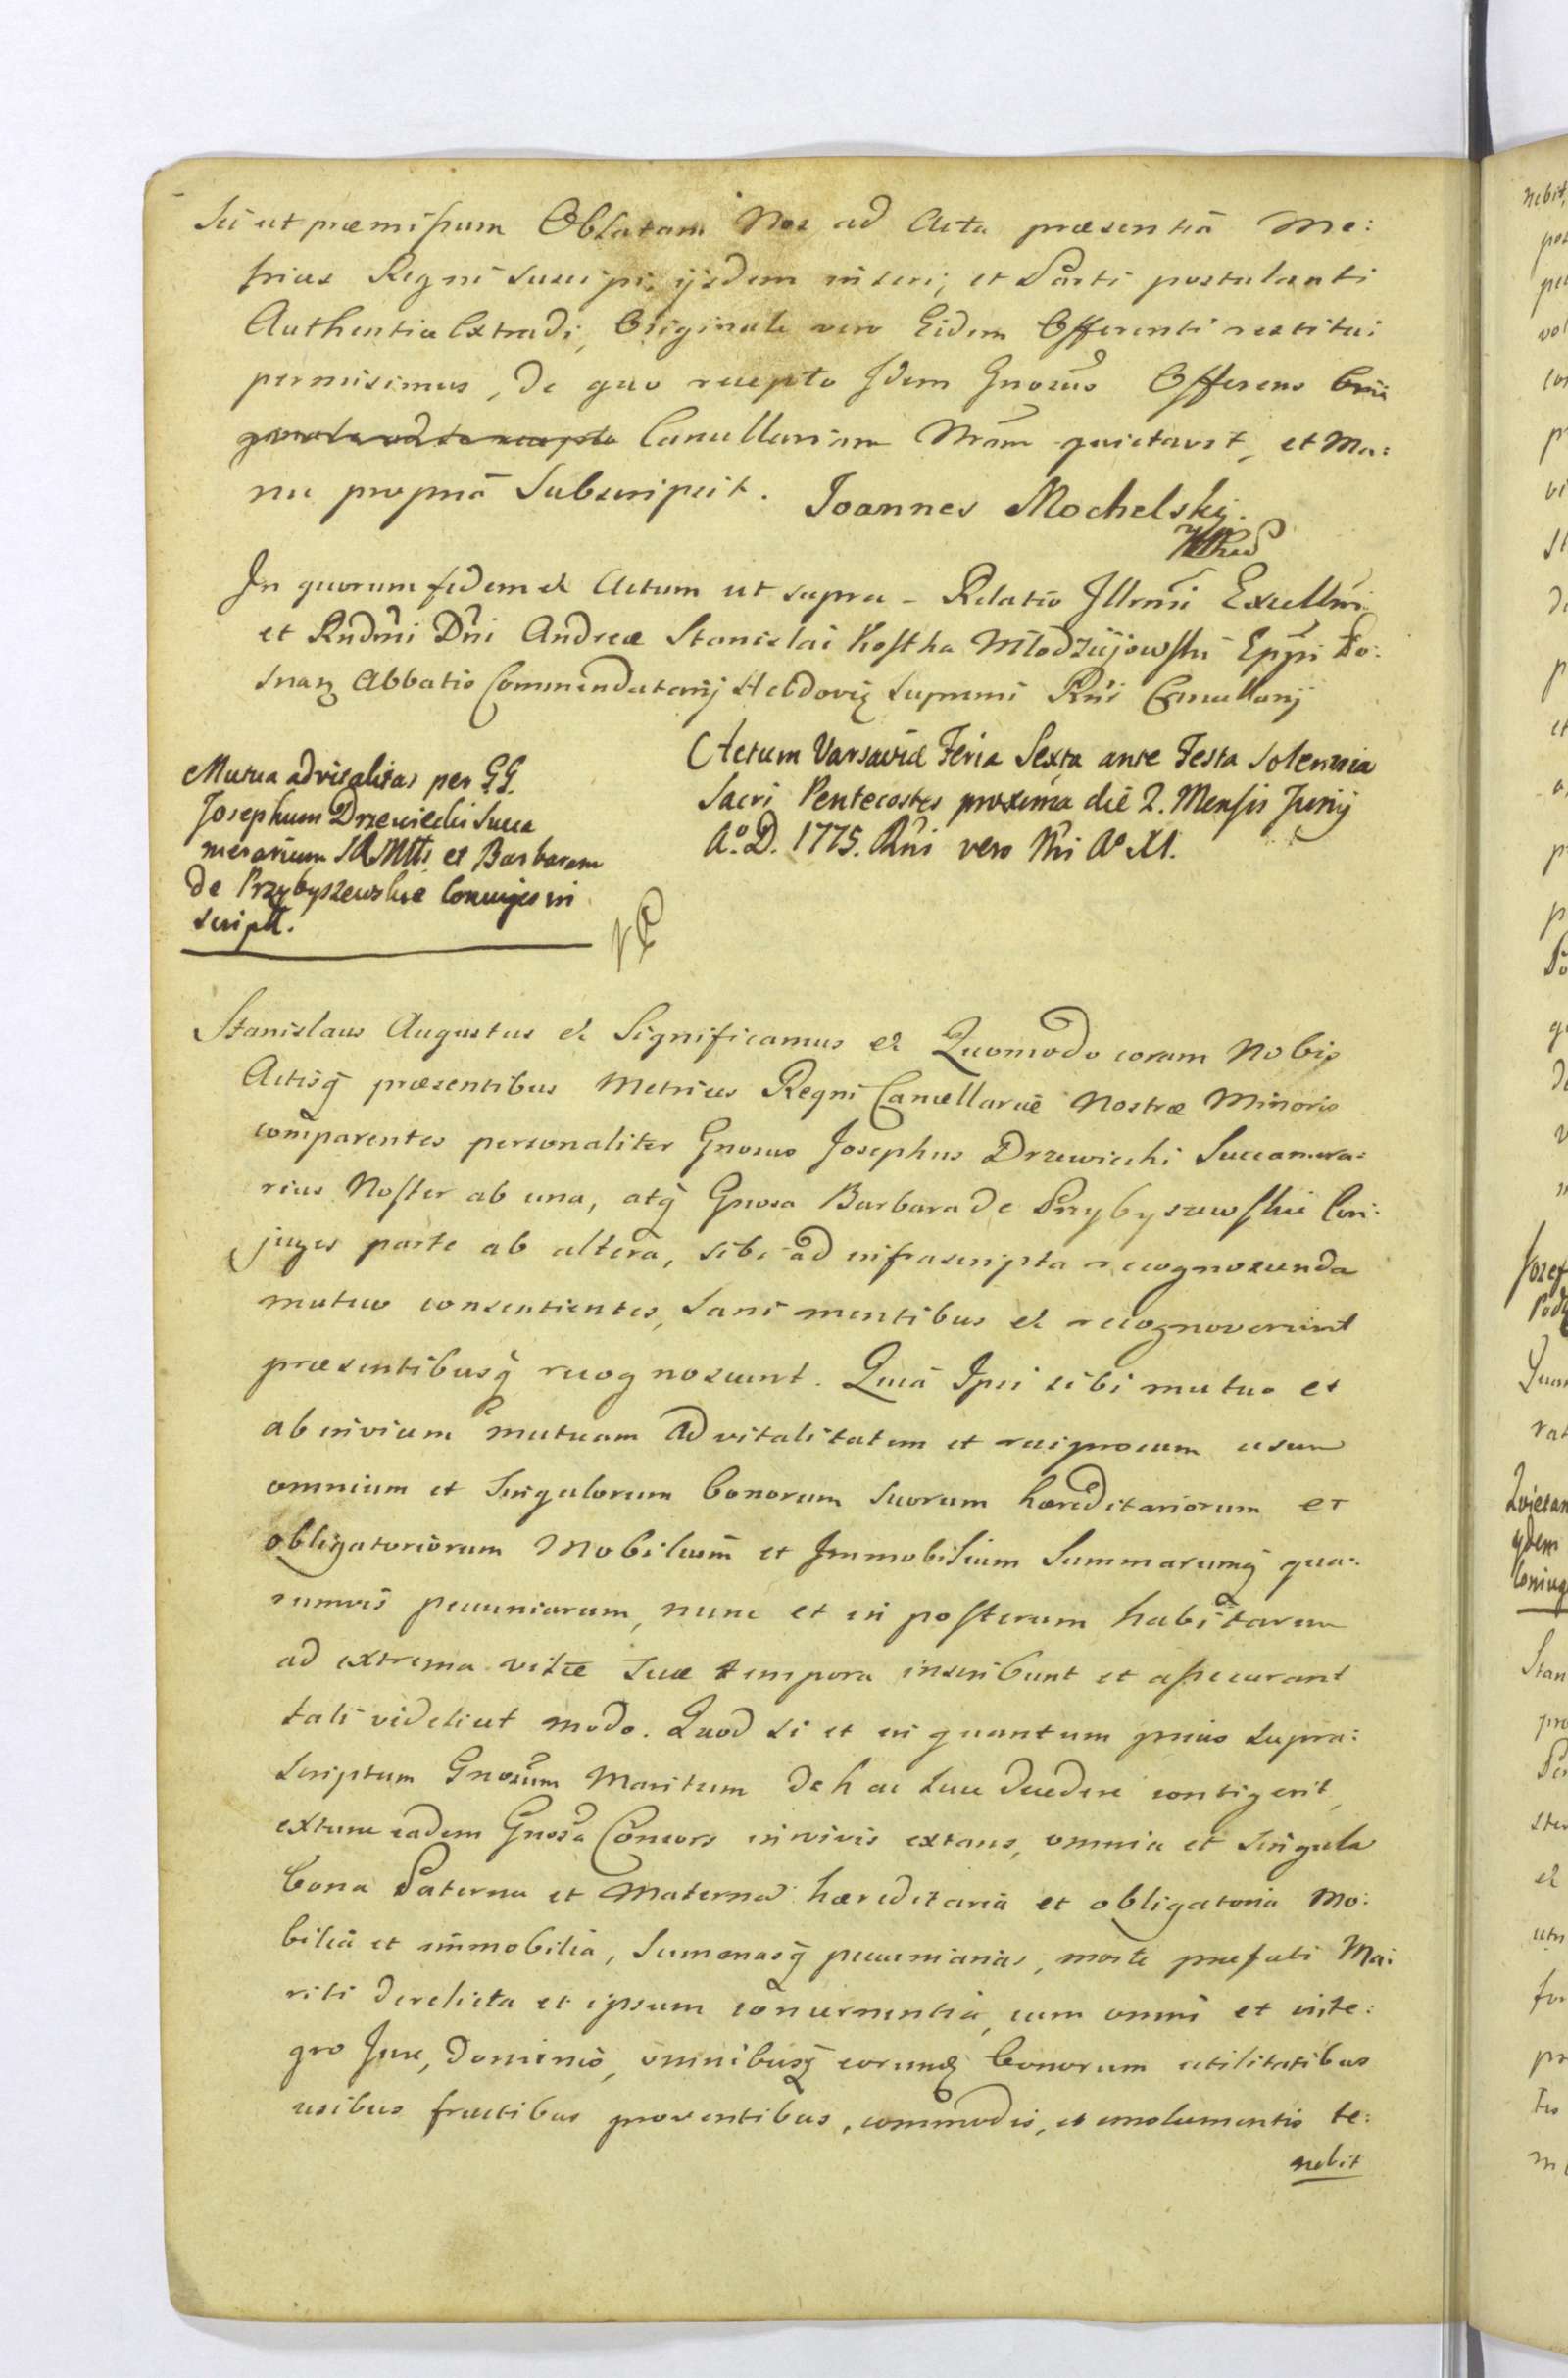 Sic ut præmissum Oblatam Nos ad Acta præsentiã Me:
tricæs Regni suscipi, ijsdem inseri, et Parti postulanti
Authentice Extradi, Originale vero Eidem Offerenti restitui
permisimus, de quo recepto Idem Gnosus Offerens Ori
Cancellariam Nram quietavit, et Ma:
nu propriã Subscripsit. Joannes Mochelskj.
In quorum fidem & Actum ut supra – Relatio Illrmi Excellmi
et Rndmi Dni Andreæ Stanislai Kostka Młodziejowski Eppi Po:
snan Abbatis Commendatarij Hebdovien Supremi Rni Cancellarij
Mutua advitalitas per GG.
Josephum Drzewiecki Succa
merarium SRMttis et Barbaram
de Przybyszewskie Conjuges in
script.
Actum Varsaviæ Feria Sexta ante Festa Solennia
Sacri Pentecostes proxima die 2. Mensis Junij
Aº. D. 1775. Rni vero Nri Aº XI.
Stanislaus Augustus & Significamus & Quomodo coram Nobis
Actisq̃ præsentibus Metrices Regni Cancellariæ Nostræ Minoris
comparentes personaliter Gnosus Josephus Drzewiecki Succamera:
rius Noster ab una, atq̃ Gnosa Barbara de Przybyszewskie Con:
juges parte ab altera, sibi ad infrascripta recognoscenda
mutuo consentientes, sani mentibus & recognoverunt
præsentibusq̃ recognoscunt. Quiã Ipsi sibi mutuo et
ab invicem mutuam Advitalitatem et reciprocum usum
omnium et Singulorum bonorum suorum hæreditariorum et
obligatoriorum Mobilium et Immobilium Summarumq̃ qua:
rumvis pecuniarum, nunc et in posterum habitarum
ad extrema vitæ suæ tempora inscribunt et assecurant
tali videlicet modo. Quod si et in quantum prius supra:
scriptum Gnosum Maritum de hac luce decedere contigerit,
extunc eadem Gnosa Consors in vivis extans, omnia et singula
bona Paterna et Materna hæreditaria et obligatoria Mo:
bilia et immobilia, Summasq̃ pecuniarias, morte præfati Ma:
riti derelicta et ipsum concernentia, cum omni et inte:
gro Jure, Dominio, omnibusq̃ eorund bonorum utilitatibus
usibus fructibus proventibus, commodis, et emolumentis te:
nebit